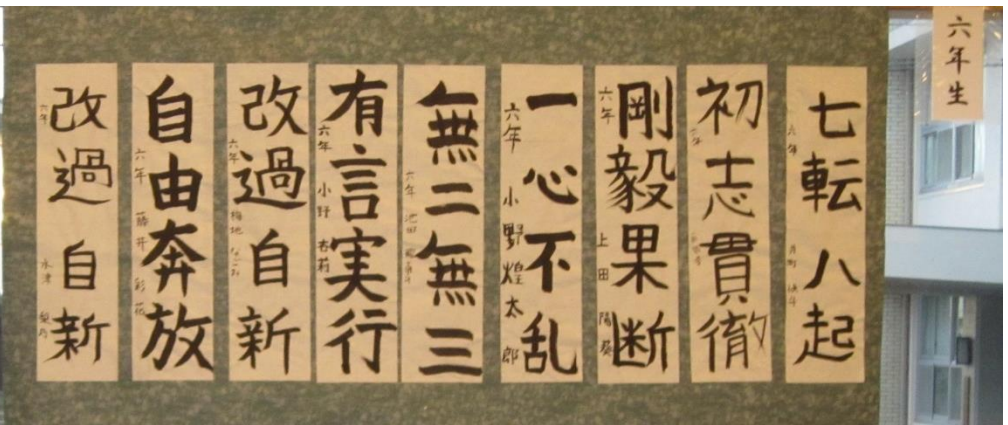 六年生
七転八起
六年
初志貫徹
六年
剛毅果断
六年 上田 陽葵
一心不乱
六年 小野煌太郎
無二無三
六年 池田
有言実行
六年 小野 杏莉
改過自新
六年 梅地 なごみ
自由奔放
六年 藤井 彩花
改過自新
六年 永津 梨乃